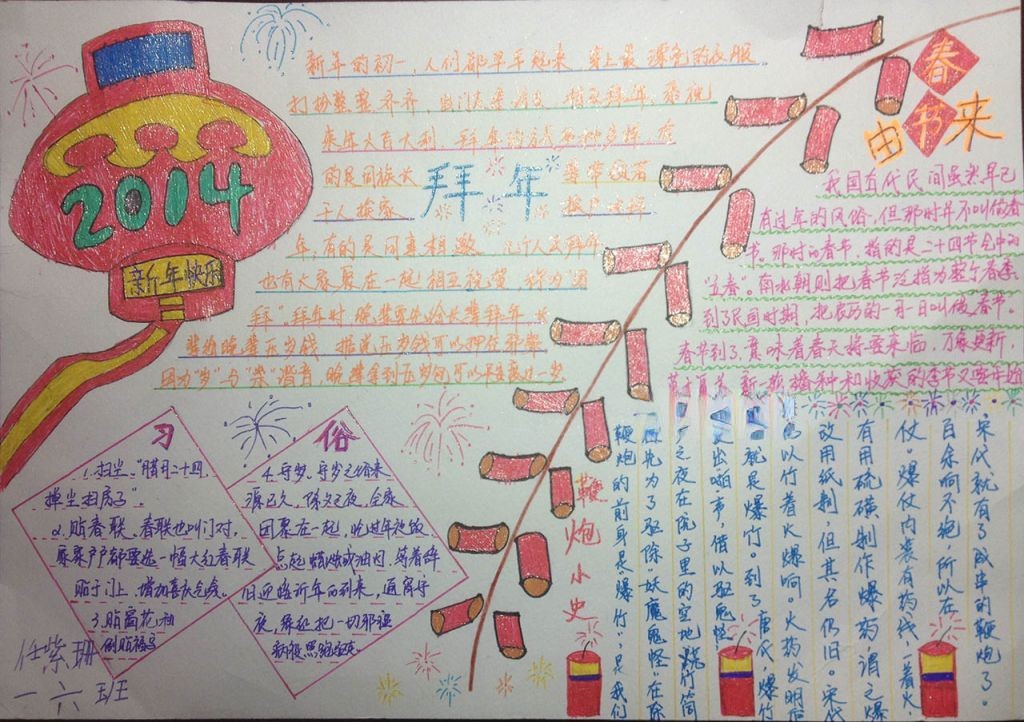 2014
新年快乐
新年的初一，人们都早早起来，穿上最漂亮的衣服，
打扮整整齐齐，出门去
来年大吉大利，拜年的方式多种多样，有
的是同族长
带领若
干人挨家
挨户
拜年
年，有的是同事相邀
人去拜年
也有大家聚在一起相互祝贺，称为"团
拜"。拜年时，晚辈要先给长辈拜年，长
辈
晚辈压岁钱，据说压岁钱可以押住邪祟
因为"岁"与"祟"谐音，晚辈得到压岁钱可以平平安安过一岁
春节
由来
我国古代民间虽然早已
有过年的风俗，但那时并不叫做春
节。那时的春节，指的是二十四节气中的
"立春"。南北朝则把春节泛指为整个春季
到了民国时期，把农历的一月一日叫做春节。
春节到了，意味着春天将要来临，万象更新，
新一轮播种和收获的季节又要开始
习
1.扫尘。"腊月二十四，
掸尘扫房子"。
2.贴春联。春联也叫门对，
家家户户都要选一幅大红春联
贴于门上，增加喜庆
3.贴窗花和
倒贴福字
俗
4.守岁。守岁之俗由来
源已久，除夕之夜，全家
团聚在一起，吃过年夜饭
点起蜡烛或油
等着辞
旧迎
新年的到来，通宵守
夜，
把一切邪瘟
鞭炮小史
宋代就有了成串的鞭炮了。
百余响不绝，所以在
仗。爆仗内装有药线，一着火，
有用硫磺制作爆药，谓之爆
改用纸制，但其名仍旧。宋代
以竹着火爆响。火药发明后
就是爆竹。到了唐代，爆竹
出啪声，借以驱鬼怪
之夜在院子里的空地
竹筒
先为了驱除妖魔鬼怪，在除
鞭炮的前身是"爆竹"，是我们
任紫珊
一六班